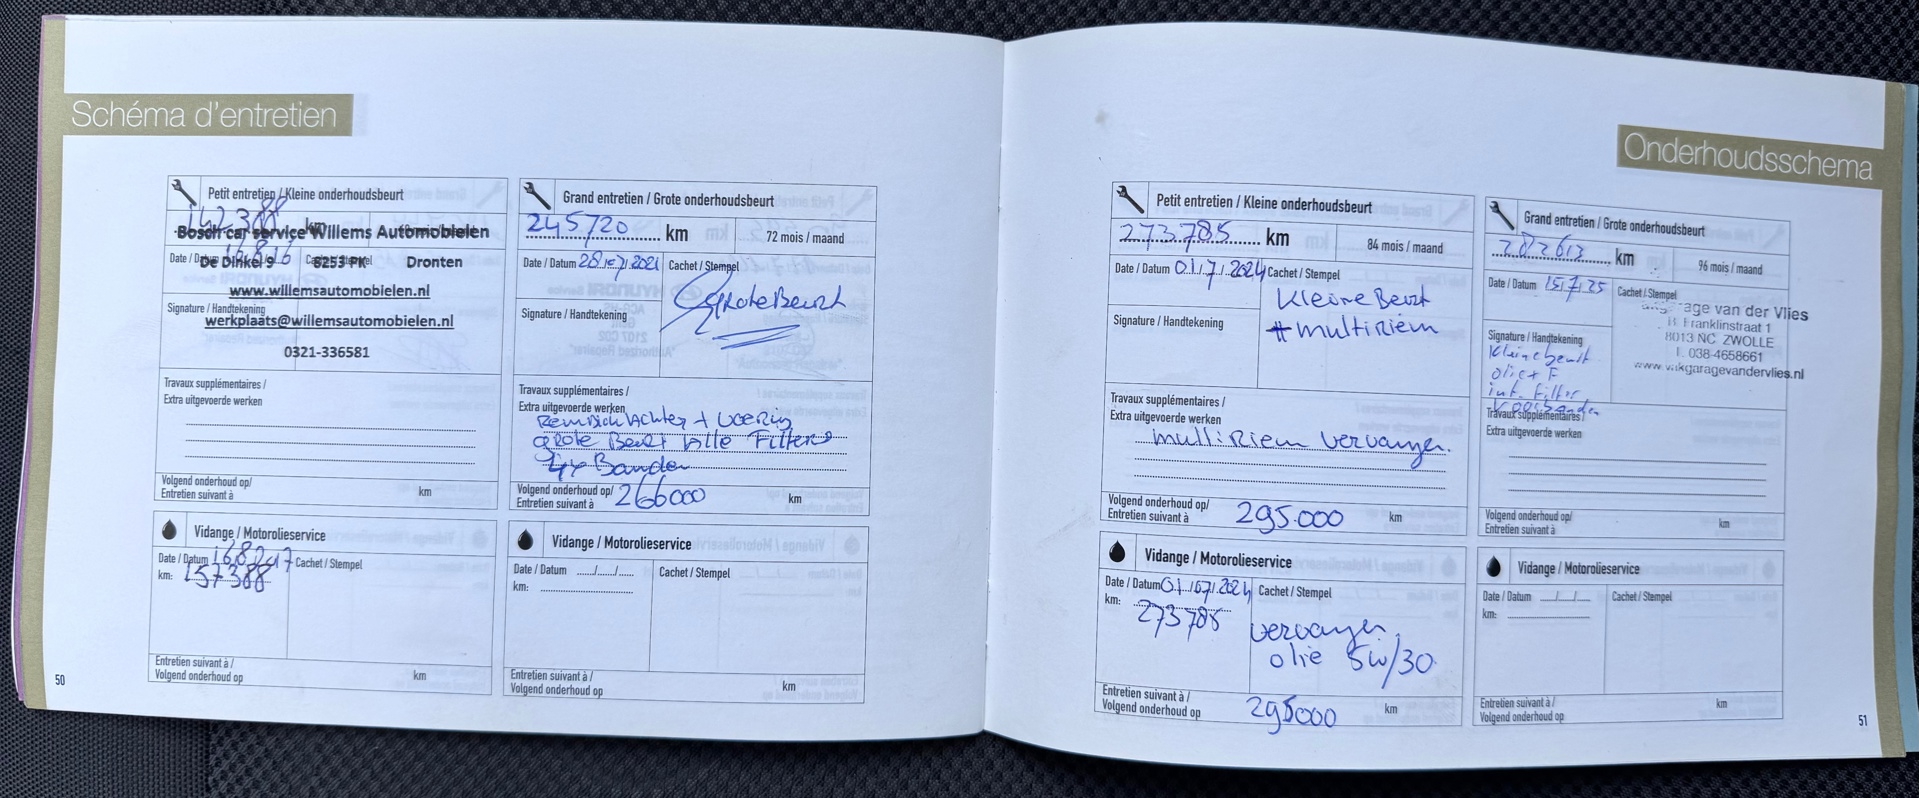 Schéma d'entretien
Petit entretien / Kleine onderhoudsbeurt
142388 km
Bosch car service Willems Automobielen
Date / Datum
De Dinkel 9 8253 PK Dronten
www.willemsautomobielen.nl
Signature / Handtekening
werkplaats@willemsautomobielen.nl
0321-336581
Travaux supplémentaires /
Extra uitgevoerde werken
Volgend onderhoud op/
Entretien suivant à km
Vidange / Motorolieservice
Date / Datum Cachet / Stempel
km: 157388
Entretien suivant à /
Volgend onderhoud op km
50
Grand entretien / Grote onderhoudsbeurt
245720 km 72 mois / maand
Date / Datum 28/07/2021 Cachet / Stempel
Grote Beurt
Signature / Handtekening
Travaux supplémentaires /
Extra uitgevoerde werken
Remdich Achter + voering
grote Beurt Alle Filters
4x Banden
Volgend onderhoud op/
Entretien suivant à 266000 km
Vidange / Motorolieservice
Date / Datum ..../..../.... Cachet / Stempel
km:
Entretien suivant à /
Volgend onderhoud op km
Onderhoudsschema
Petit entretien / Kleine onderhoudsbeurt
273785 km 84 mois / maand
Date / Datum 01/7/2024 Cachet / Stempel
Kleine Beurt
# multiriem
Signature / Handtekening
Travaux supplémentaires /
Extra uitgevoerde werken
multiriem vervangen.
Volgend onderhoud op/
Entretien suivant à 295.000 km
Vidange / Motorolieservice
Date / Datum 01/07/2024 Cachet / Stempel
km: 273785
vervangen
olie 5w/30
Entretien suivant à /
Volgend onderhoud op 295000 km
Grand entretien / Grote onderhoudsbeurt
282613 km 96 mois / maand
Date / Datum 15/7/25 Cachet / Stempel
van der Vlies
Franklinstraat 1
8013 NC ZWOLLE
T. 038-4658661
www.vakgaragevandervlies.nl
Signature / Handtekening
Kleine beurt
olie + F
int. filter
Voorbanden
Travaux supplémentaires /
Extra uitgevoerde werken
Volgend onderhoud op/
Entretien suivant à km
Vidange / Motorolieservice
Date / Datum __/__/__ Cachet / Stempel
km:
Entretien suivant à /
Volgend onderhoud op km
51